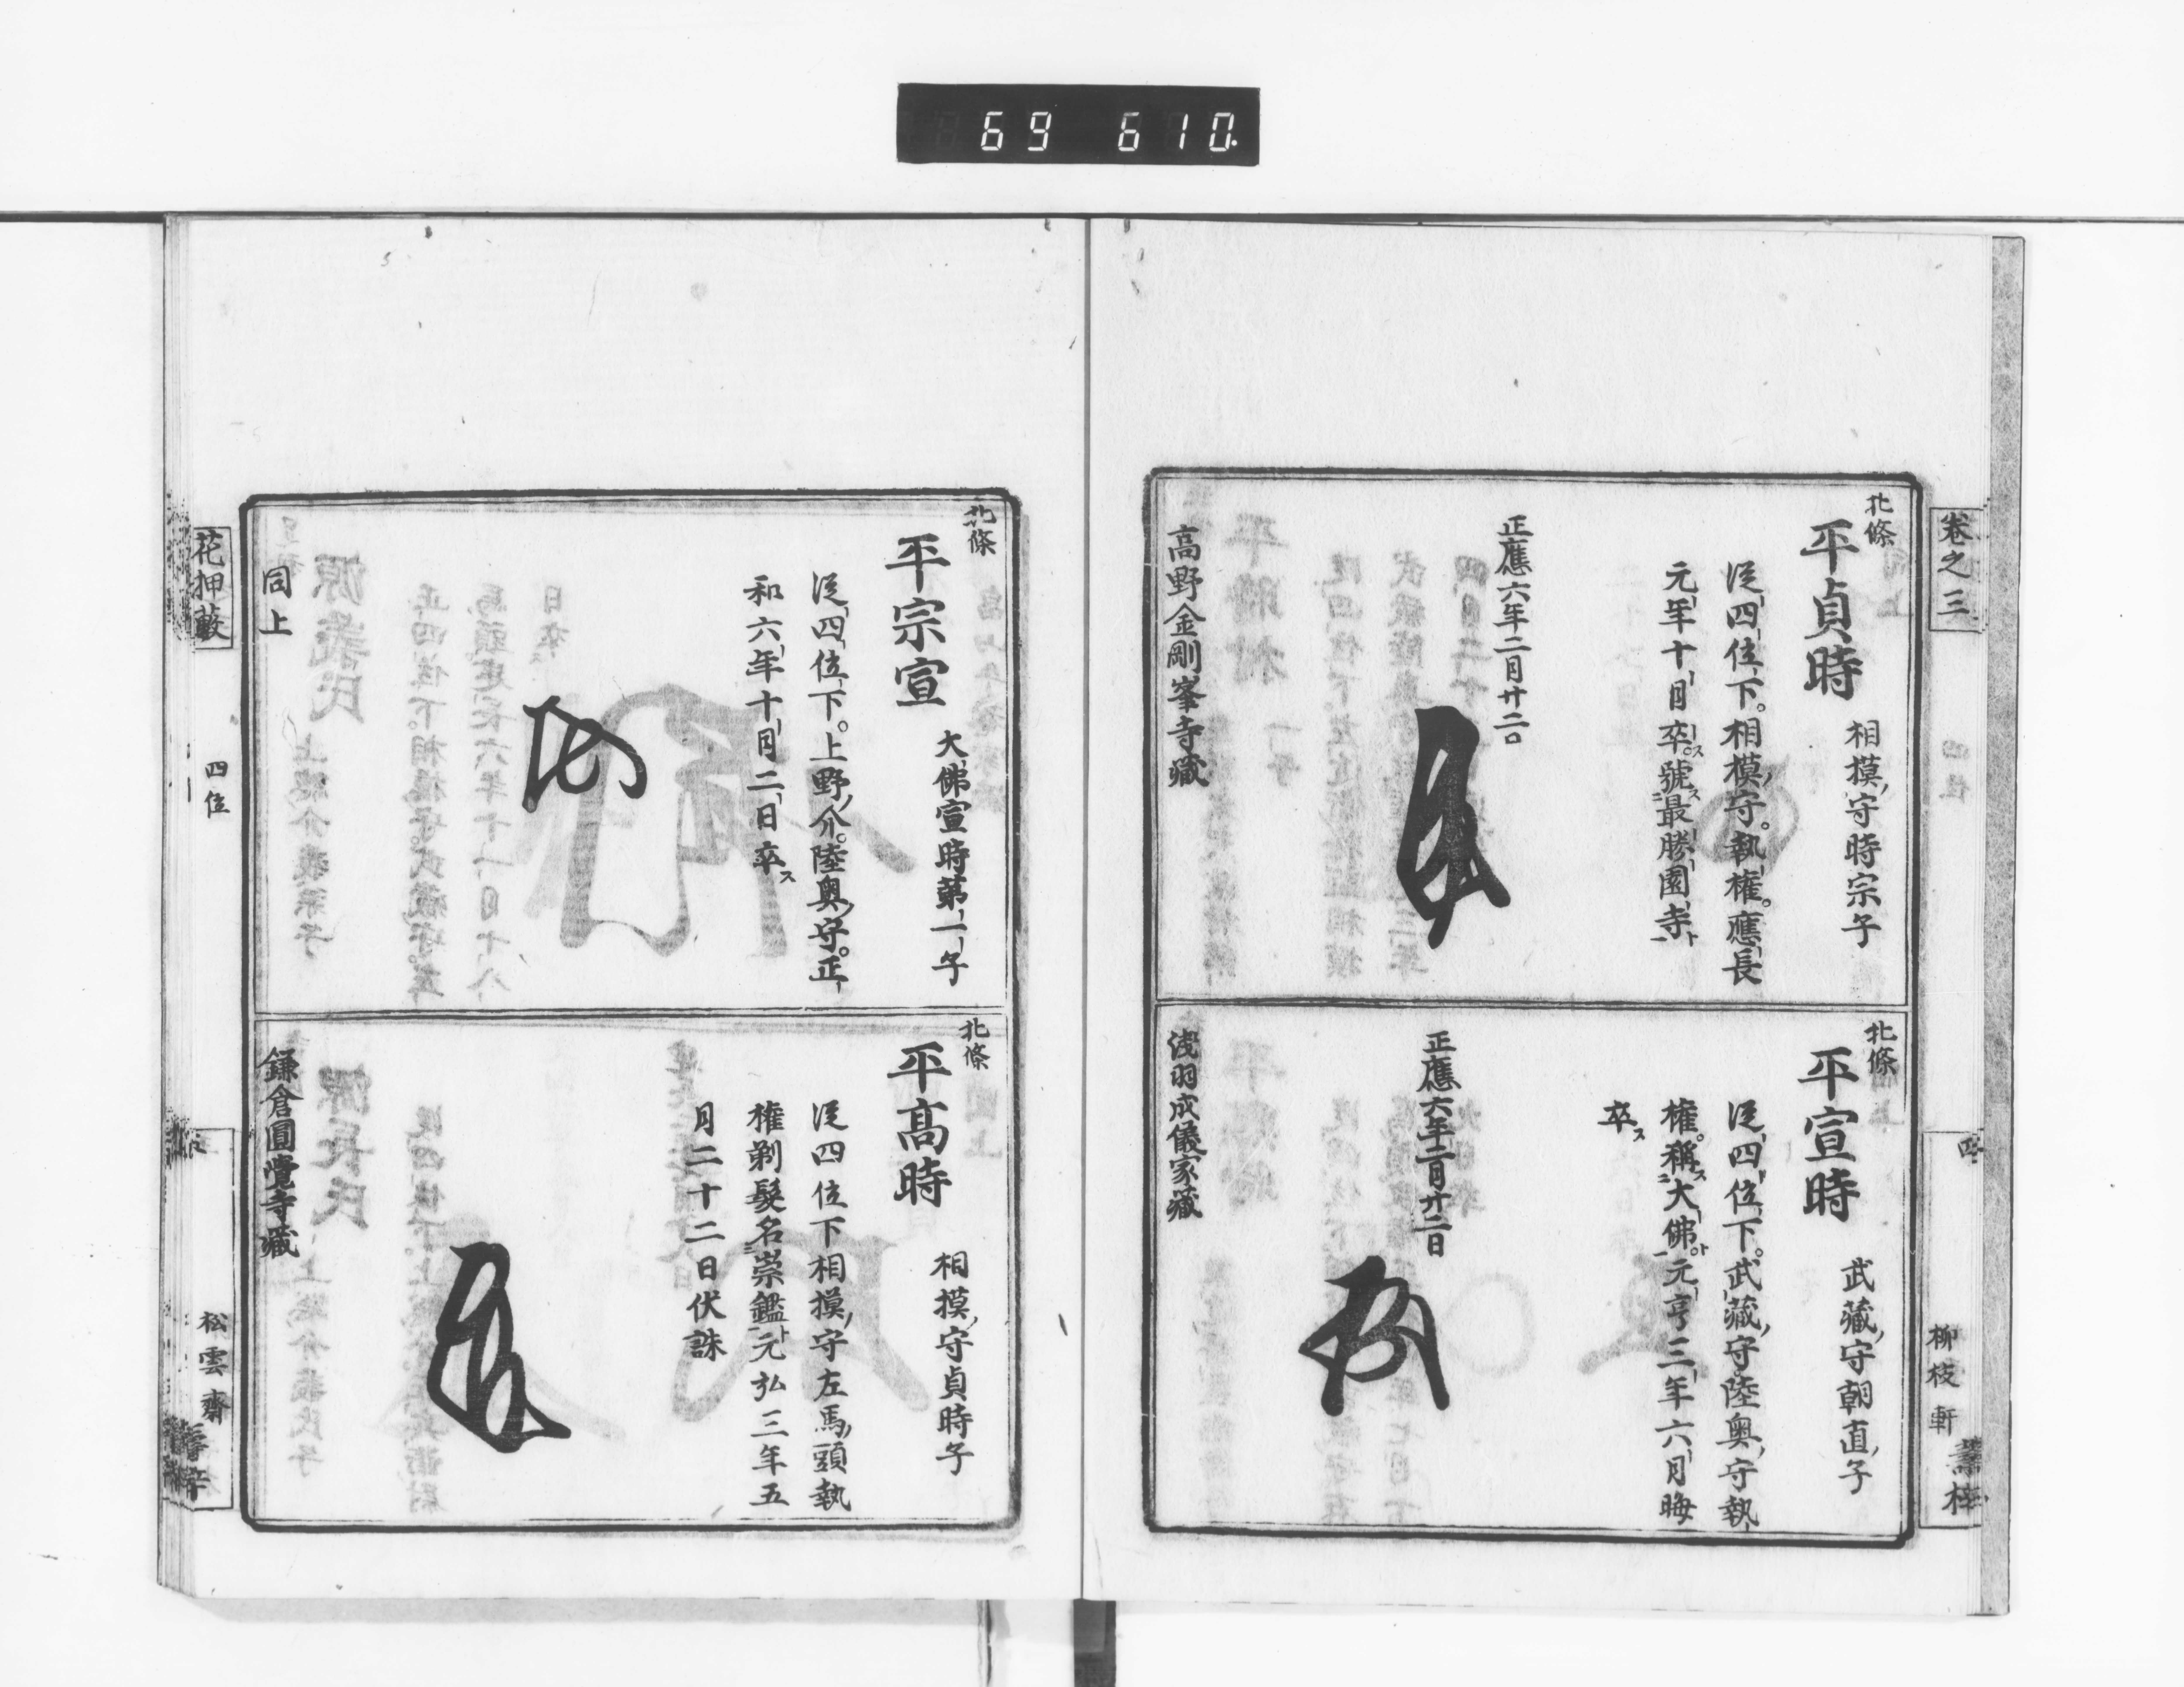 69 610.
卷之三
四
柳枝軒
北條
平貞時
相摸守時宗子
從四位下。相摸守。執權。應長
元年十月卒ス。號ス最勝園寺ト
正應六年二月廿二日
高野金剛峯寺藏
北條
平宣時
武藏守朝直子
從四位下。武藏守。陸奥守執
權。稱ス大佛ト。元亨三年六月晦
卒ス
正應六年二月廿二日
淺羽成儀家藏
北條
平宗宣
大佛宣時第一子
從四位下。上野介。陸奥守。正
和六年十月二日卒ス
同上
北條
平高時
相摸守貞時子
從四位下相摸守左馬頭執
權剃髮名崇鑑ト元弘三年五
月二十二日伏誅
鎌倉圓覺寺藏
花押藪
四位
松雲齋